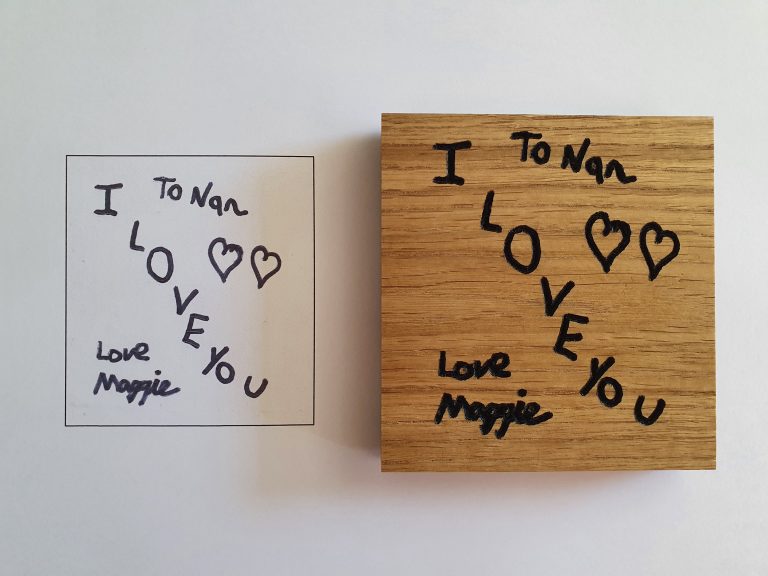 To Nan
I
LOVE
YOU
Love
Maggie
To Nan
I
LOVE
YOU
Love
Maggie